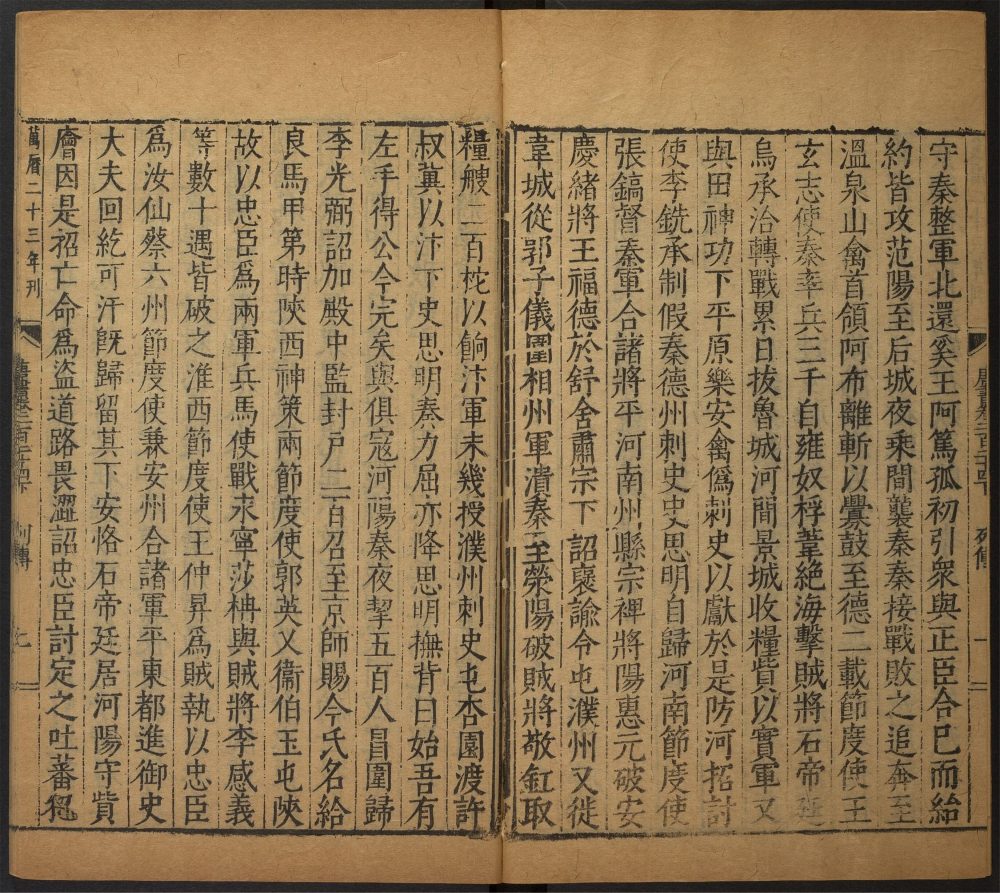 守秦整軍北還奚王阿篤孤初引衆與正臣合已而紿
約皆攻范陽至后城夜乘間襲秦秦接戰敗之追奔至
溫泉山禽首領阿布離斬以釁鼓至德二載節度使王
玄志使秦率兵三千自雍奴桴葦絶海擊賊將石帝廷
烏承洽轉戰累日拔魯城河間景城收糧貲以實軍又
與田神功下平原樂安禽僞刺史以獻於是防河招討
使李銑承制假秦德州刺史史思明自歸河南節度使
張鎬督秦軍合諸將平河南州縣宗裨將陽惠元破安
慶緒將王福德於舒舍肅宗下詔襃諭令屯濮州又徙
韋城從郭子儀圍相州軍潰秦至滎陽破賊將敬釭取
糧艘二百柁以餉汴軍未幾授濮州刺史屯杏園渡許
叔冀以汴下史思明秦力屈亦降思明撫背曰始吾有
左手得公今完矣與俱寇河陽秦夜挈五百人冒圍歸
李光弼詔加殿中監封戸二百召至京師賜今氏名給
良馬甲第時陜西神策兩節度使郭英乂衞伯玉屯陜
故以忠臣爲兩軍兵馬使戰永寧莎柵與賊將李感義
等數十遇皆破之淮西節度使王仲昇爲賊執以忠臣
爲汝仙蔡六州節度使兼安州合諸軍平東都進御史
大夫回紇可汗旣歸留其下安恪石帝廷居河陽守貲
廥因是招亡命爲盜道路畏澀詔忠臣討定之吐蕃犯
萬曆二十三年刊